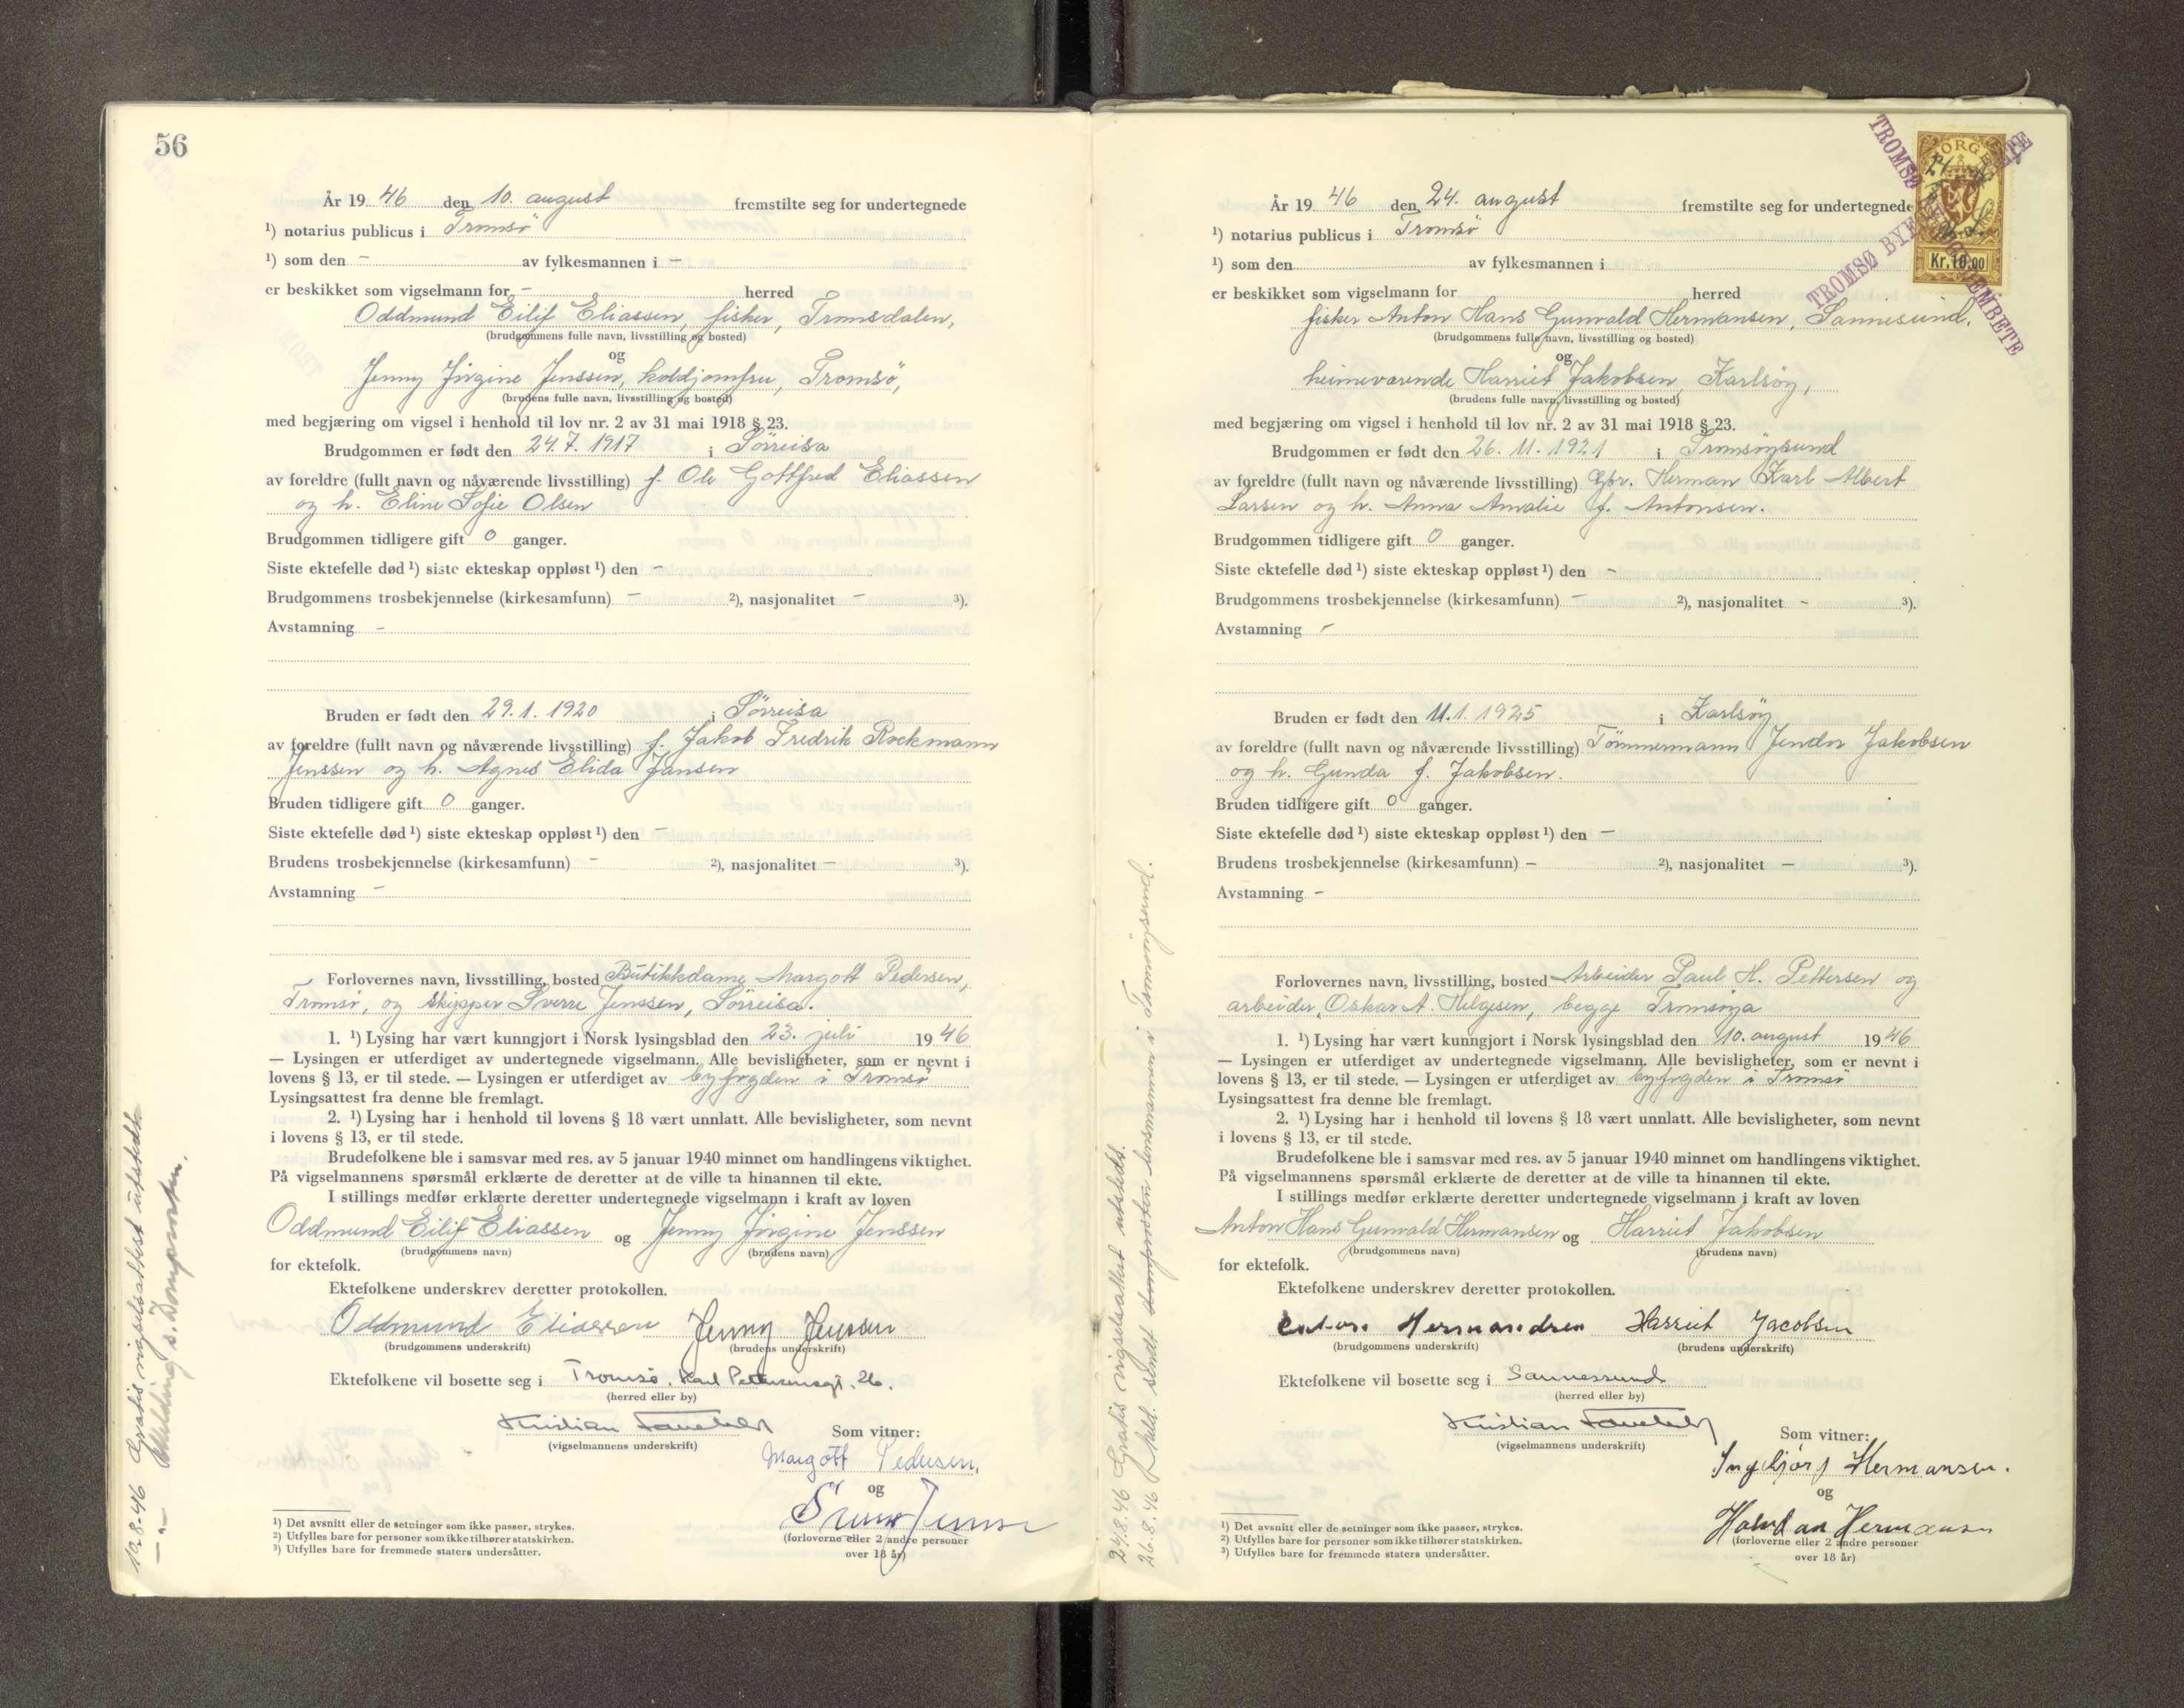 56
År 19 46 den 10. august fremstilte seg for undertegnede
¹) notarius publicus i Tromsö
¹) som den – av fylkesmannen i –
er beskikket som vigselmann for – herred
Oddmund Eilif Eliassen, fisker, Tromsdalen,
(brudgommens fulle navn, livsstilling og bosted)
og
Jenny Jörgine Jenssen, koldjomfru, Tromsö,
(brudens fulle navn, livsstilling og bosted)
med begjæring om vigsel i henhold til lov nr. 2 av 31 mai 1918 § 23.
Brudgommen er født den 24.7.1917 i Sörreisa
av foreldre (fullt navn og nåværende livsstilling) f. Ole Gottfred Eliassen
og h. Eline Sofie Olsen
Brudgommen tidligere gift 0 ganger.
Siste ektefelle død ¹) siste ekteskap oppløst ¹) den –
Brudgommens trosbekjennelse (kirkesamfunn) – ²), nasjonalitet – ³).
Avstamning –
Bruden er født den 29.1.1920 i Sörreisa
av foreldre (fullt navn og nåværende livsstilling) f. Jakob Fredrik Rockmann
Jenssen og h. Agnes Elida Jansen
Bruden tidligere gift 0 ganger.
Siste ektefelle død ¹) siste ekteskap oppløst ¹) den –
Brudens trosbekjennelse (kirkesamfunn) – ²), nasjonalitet – ³).
Avstamning –
Forlovernes navn, livsstilling, bosted Butikkdame Margott Pedersen,
Tromsö, og skipper Sverre Jenssen, Sörreisa.
1. ¹) Lysing har vært kunngjort i Norsk lysingsblad den 23. juli 19 46
— Lysingen er utferdiget av undertegnede vigselmann. Alle bevisligheter, som er nevnt i
lovens § 13, er til stede. — Lysingen er utferdiget av byfogden i Tromsö
Lysingsattest fra denne ble fremlagt.
2. ¹) Lysing har i henhold til lovens § 18 vært unnlatt. Alle bevisligheter, som nevnt
i lovens § 13, er til stede.
Brudefolkene ble i samsvar med res. av 5 januar 1940 minnet om handlingens viktighet.
På vigselmannens spørsmål erklærte de deretter at de ville ta hinannen til ekte.
I stillings medfør erklærte deretter undertegnede vigselmann i kraft av loven
Oddmund Eilif Eliassen og Jenny Jörgine Jenssen
(brudgommens navn) (brudens navn)
for ektefolk.
Ektefolkene underskrev deretter protokollen.
Oddmund Eliassen Jenny Jenssen
(brudgommens underskrift) (brudens underskrift)
Ektefolkene vil bosette seg i Tromsø, Karl Pettersensgt. 26.
(herred eller by)
Kristian
(vigselmannens underskrift)
Som vitner:
Margott Pedersen,
og
(forloverne eller 2 andre personer
over 18 år)
¹) Det avsnitt eller de setninger som ikke passer, strykes.
²) Utfylles bare for personer som ikke tilhører statskirken.
³) Utfylles bare for fremmede staters undersåtter.
10.8-46 Gratis vigselsattest utstedt.
–"– Melding s. Domprosten.
År 19 46 den 24. august fremstilte seg for undertegnede
¹) notarius publicus i Tromsö
¹) som den av fylkesmannen i
er beskikket som vigselmann for herred
fisker Anton Hans Gunvald Hermansen, Sannesund,
(brudgommens fulle navn, livsstilling og bosted)
og
heimeværende Harriet Jakobsen, Karlsöy,
(brudens fulle navn, livsstilling og bosted)
med begjæring om vigsel i henhold til lov nr. 2 av 31 mai 1918 § 23.
Brudgommen er født den 26.11.1921 i Tromsöysund
av foreldre (fullt navn og nåværende livsstilling) Gbr. Herman Karl Albert
Larsen og h. Anna Amalie f. Antonsen.
Brudgommen tidligere gift 0 ganger.
Siste ektefelle død ¹) siste ekteskap oppløst ¹) den –
Brudgommens trosbekjennelse (kirkesamfunn) – ²), nasjonalitet – ³).
Avstamning –
Bruden er født den 11.1.1925 i Karlsöy
av foreldre (fullt navn og nåværende livsstilling) Tömmermann Jendor Jakobsen
og h. Gunda f. Jakobsen.
Bruden tidligere gift 0 ganger.
Siste ektefelle død ¹) siste ekteskap oppløst ¹) den –
Brudens trosbekjennelse (kirkesamfunn) – ²), nasjonalitet – ³).
Avstamning –
Forlovernes navn, livsstilling, bosted Arbeider Paul H. Pettersen og
arbeider, Oskar A. Helgesen, begge Tromsöya
1. ¹) Lysing har vært kunngjort i Norsk lysingsblad den 10. august 19 46
— Lysingen er utferdiget av undertegnede vigselmann. Alle bevisligheter, som er nevnt i
lovens § 13, er til stede. — Lysingen er utferdiget av byfogden i Tromsö
Lysingsattest fra denne ble fremlagt.
2. ¹) Lysing har i henhold til lovens § 18 vært unnlatt. Alle bevisligheter, som nevnt
i lovens § 13, er til stede.
Brudefolkene ble i samsvar med res. av 5 januar 1940 minnet om handlingens viktighet.
På vigselmannens spørsmål erklærte de deretter at de ville ta hinannen til ekte.
I stillings medfør erklærte deretter undertegnede vigselmann i kraft av loven
Anton Hans Gunvald Hermansen og Harriet Jakobsen
(brudgommens navn) (brudens navn)
for ektefolk.
Ektefolkene underskrev deretter protokollen.
Anton Hermandsen Harriet Jacobsen
(brudgommens underskrift) (brudens underskrift)
Ektefolkene vil bosette seg i Sannessund
(herred eller by)
Kristian
(vigselmannens underskrift)
Som vitner:
Ingebjørg Hermansen.
og
Halvdan Hermansen
(forloverne eller 2 andre personer
over 18 år)
¹) Det avsnitt eller de setninger som ikke passer, strykes.
²) Utfylles bare for personer som ikke tilhører statskirken.
³) Utfylles bare for fremmede staters undersåtter.
24.8.46 Gratis vigselsattest utstedt.
26.8.46 Meld. sendt domprosten lensmannen i Tromsöysund.
NORGE
Kr. 10.00
TROMSØ BYFOGDEMBETE
TROMSØ BYF